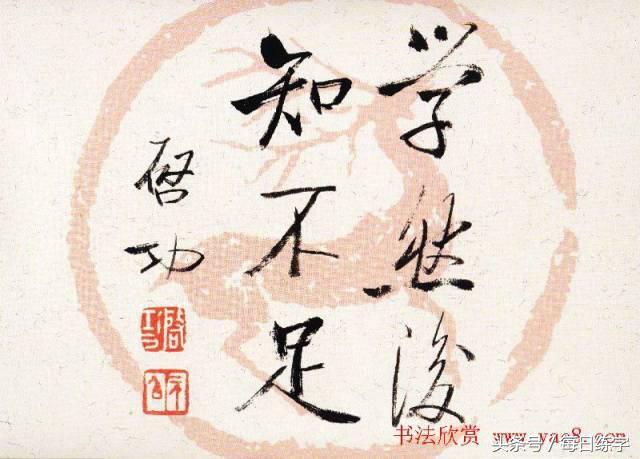 学然後
知不足
启功
书法欣赏 www.yac8.com
头条号/每日练字